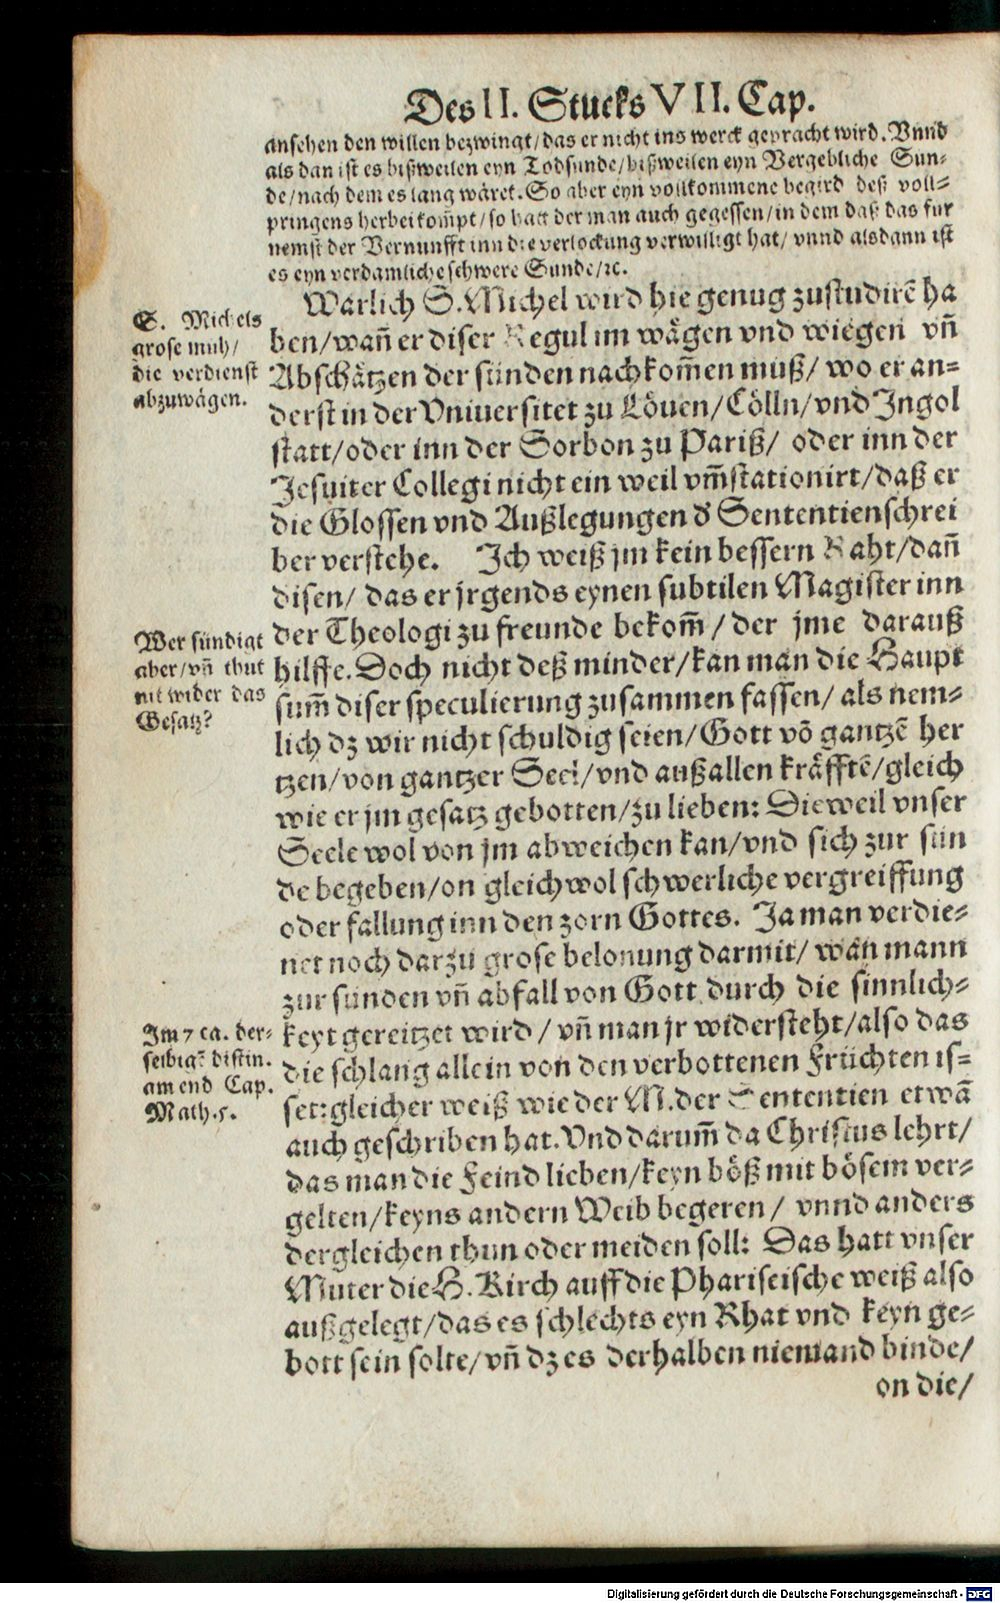 Des II. Stucks VII. Cap.
ansehen den willen bezwingt/das er nicht ins werck gepracht wird. Vnnd
als dan ist es bißweilen eyn Todsunde/bißweilen eyn Vergebliche Sun-
de/nach dem es lang wäret. So aber eyn vollkommene begird deß voll-
pringens herbei kompt/so hatt der man auch gegessen/in dem daß das fur
nemst der Vernunfft inn die verlockung verwilligt hat/ vnnd alsdann ist
es eyn verdamliche schwere Sunde/ꝛc.
Warlich S. Michel wird hie genug zustudirẽ ha
ben/wañ er diser Regul im wägen vnd wiegen vñ
Abschätzen der sünden nachkom̃en muß/ wo er an-
derst in der Vniuersitet zu Löuen/Cölln/vnd Ingol
statt/oder inn der Sorbon zu Pariß/ oder inn der
Jesuiter Collegi nicht ein weil vm̃stationirt/daß er
die Glossen vnd Außlegungen d' Sententienschrei
ber verstehe. Ich weiß jm kein bessern Raht/dañ
disen/ das er jrgends eynen subtilen Magister inn
der Theologi zu freunde bekom̃/ der jme darauß
hilffe. Doch nicht deß minder/kan man die Haupt
sum̃ diser speculierung zusammen fassen/ als nem-
lich dz wir nicht schuldig seien/Gott võ gantzẽ her
tzen/von gantzer Seel/vnd auß allen kräfftẽ/gleich
wie er jm gesatz gebotten/zu lieben: Dieweil vnser
Seele wol von jm abweichen kan/vnd sich zur sün
de begeben/on gleichwol schwerliche vergreiffung
oder fallung inn den zorn Gottes. Ja man verdie-
net noch darzu grose belonung darmit/ wan mann
zur sunden vñ abfall von Gott durch die sinnlich-
keyt gereitzet wird/ vñ man jr widersteht/also das
die schlang allein von den verbottenen Früchten is-
set: gleicher weiß wie der M. der Sententien etwã
auch geschriben hat. Vnd darum̃ da Christus lehrt/
das man die Feind lieben/keyn böß mit bösem ver-
gelten/keyns andern Weib begeren/ vnnd anders
dergleichen thun oder meiden soll: Das hatt vnser
Muter die H. Kirch auff die Phariseische weiß also
außgelegt/das es schlechts eyn Rhat vnd keyn ge-
bott sein solte/vñ dz es derhalben niemand binde/
on die/
S. Michels
grose muh/
die verdienst
abzuwägen.
Wer sündigt
aber/vñ thut
nit wider das
Gesatz?
Im 7 ca. der-
selbigẽ distin.
am end Cap.
Math. 5.
Digitalisierung gefördert durch die Deutsche Forschungsgemeinschaft - DFG